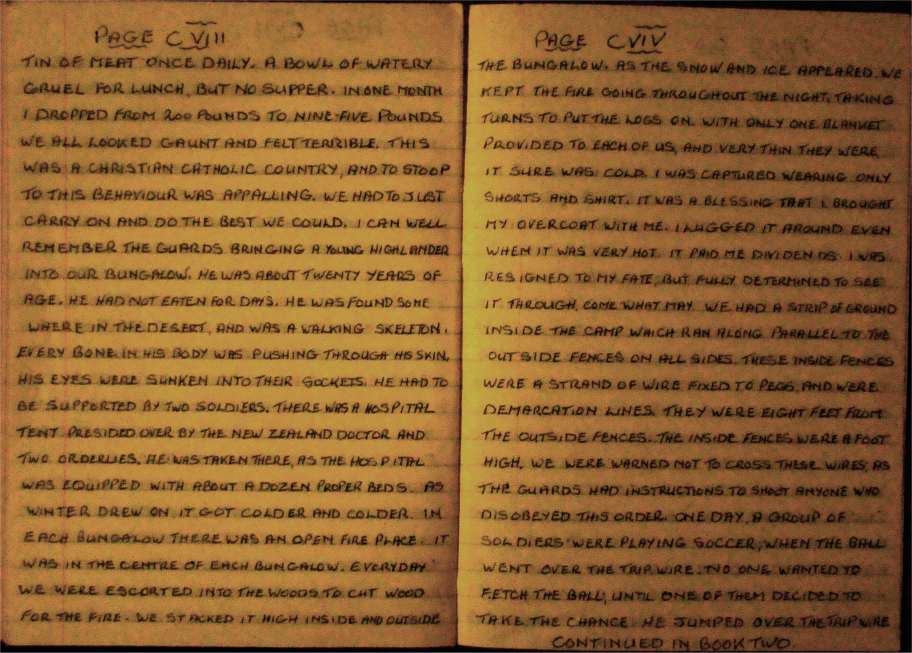 PAGE CVIII
TIN OF MEAT ONCE DAILY. A BOWL OF WATERY
GRUEL FOR LUNCH, BUT NO SUPPER. IN ONE MONTH
I DROPPED FROM 200 POUNDS TO NINE-FIVE POUNDS
WE ALL LOOKED GAUNT AND FELT TERRIBLE. THIS
WAS A CHRISTIAN CATHOLIC COUNTRY, AND TO STOOP
TO THIS BEHAVIOUR WAS APPALLING. WE HAD TO JUST
CARRY ON AND DO THE BEST WE COULD. I CAN WELL
REMEMBER THE GUARDS BRINGING A YOUNG HIGHLANDER
INTO OUR BUNGALOW. HE WAS ABOUT TWENTY YEARS OF
AGE. HE HAD NOT EATEN FOR DAYS. HE WAS FOUND SOME
WHERE IN THE DESERT, AND WAS A WALKING SKELETON.
EVERY BONE IN HIS BODY WAS PUSHING THROUGH HIS SKIN.
HIS EYES WERE SUNKEN INTO THEIR SOCKETS. HE HAD TO
BE SUPPORTED BY TWO SOLDIERS. THERE WAS A HOSPITAL
TENT PRESIDED OVER BY THE NEW ZEALAND DOCTOR AND
TWO ORDERLIES. HE WAS TAKEN THERE, AS THE HOSPITAL
WAS EQUIPPED WITH ABOUT A DOZEN PROPER BEDS. AS
WINTER DREW ON IT GOT COLDER AND COLDER. IN
EACH BUNGALOW THERE WAS AN OPEN FIRE PLACE. IT
WAS IN THE CENTRE OF EACH BUNGALOW. EVERYDAY
WE WERE ESCORTED INTO THE WOODS TO CUT WOOD
FOR THE FIRE. WE STACKED IT HIGH INSIDE AND OUTSIDE
PAGE CVIV
THE BUNGALOW. AS THE SNOW AND ICE APPEARED. WE
KEPT THE FIRE GOING THROUGHOUT THE NIGHT, TAKING
TURNS TO PUT THE LOGS ON. WITH ONLY ONE BLANKET
PROVIDED TO EACH OF US, AND VERY THIN THEY WERE
IT SURE WAS COLD. I WAS CAPTURED WEARING ONLY
SHORTS AND SHIRT. IT WAS A BLESSING THAT I BROUGHT
MY OVERCOAT WITH ME. I LUGGED IT AROUND EVEN
WHEN IT WAS VERY HOT. IT PAID ME DIVIDENDS. I WAS
RESIGNED TO MY FATE, BUT FULLY DETERMINED TO SEE
IT THROUGH. COME WHAT MAY. WE HAD A STRIP OF GROUND
INSIDE THE CAMP WHICH RAN ALONG PARALLEL TO THE
OUTSIDE FENCES ON ALL SIDES. THESE INSIDE FENCES
WERE A STRAND OF WIRE FIXED TO PEGS, AND WERE
DEMARCATION LINES. THEY WERE EIGHT FEET FROM
THE OUTSIDE FENCES. THE INSIDE FENCES WERE A FOOT
HIGH. WE WERE WARNED NOT TO CROSS THESE WIRES, AS
THE GUARDS HAD INSTRUCTIONS TO SHOOT ANYONE WHO
DISOBEYED THIS ORDER. ONE DAY, A GROUP OF
SOLDIERS WERE PLAYING SOCCER, WHEN THE BALL
WENT OVER THE TRIP WIRE. NO ONE WANTED TO
FETCH THE BALL, UNTIL ONE OF THEM DECIDED TO
TAKE THE CHANCE. HE JUMPED OVER THE TRIP WIRE
CONTINUED IN BOOK TWO.